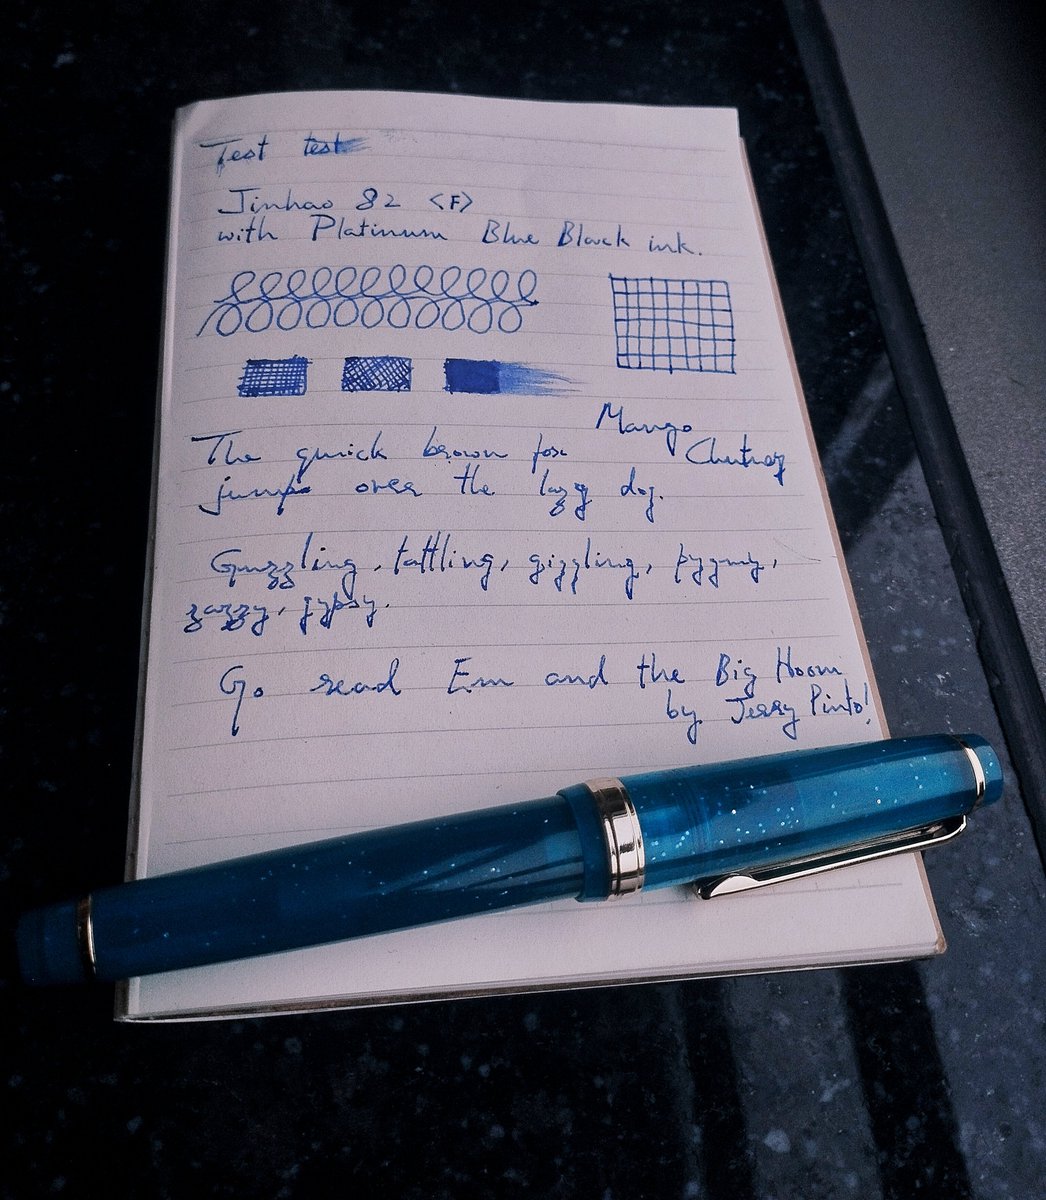 Test test
Jinhao 82 <F>
with Platinum Blue Black ink.
Mango
Chutney
The quick brown fox
jumps over the lazy dog.
Guzzling, tattling, giggling, pygmy,
zazzy, gypsy.
Go read Em and the Big Hoom
by Jerry Pinto!